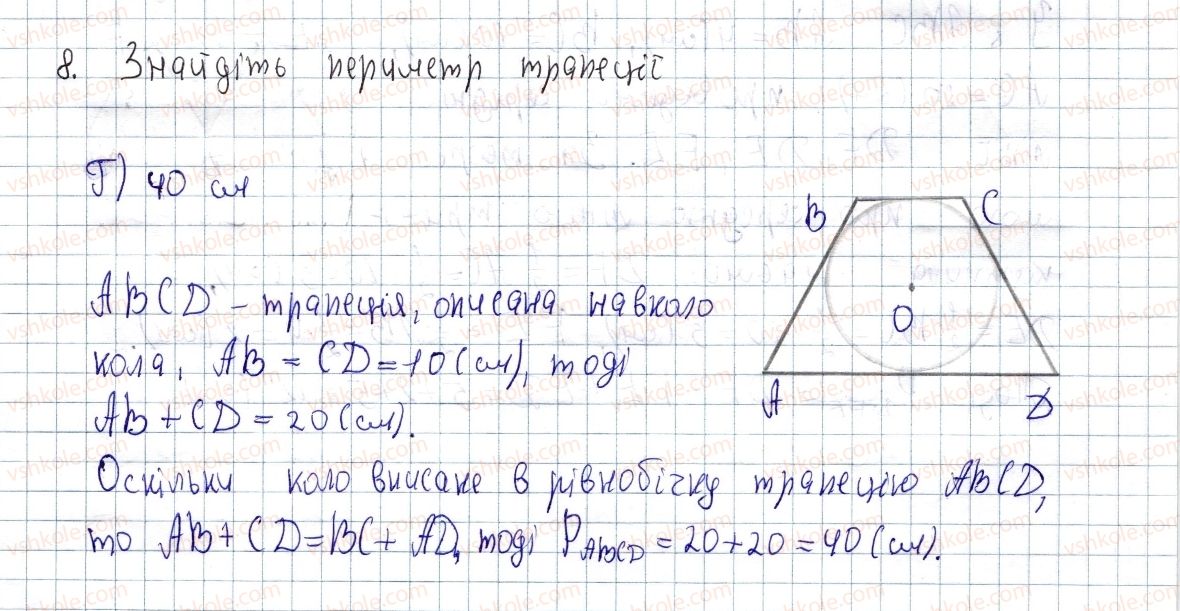 8. Знайдіть периметр трапеції
Г) 40 см
B C
O
A D
ABCD – трапеція, описана навколо
кола, AB = CD = 10 (см), тоді
AB + CD = 20 (см).
Оскільки коло вписане в рівнобічну трапецію ABCD,
то AB + CD = BC + AD, тоді P_ABCD = 20 + 20 = 40 (см).